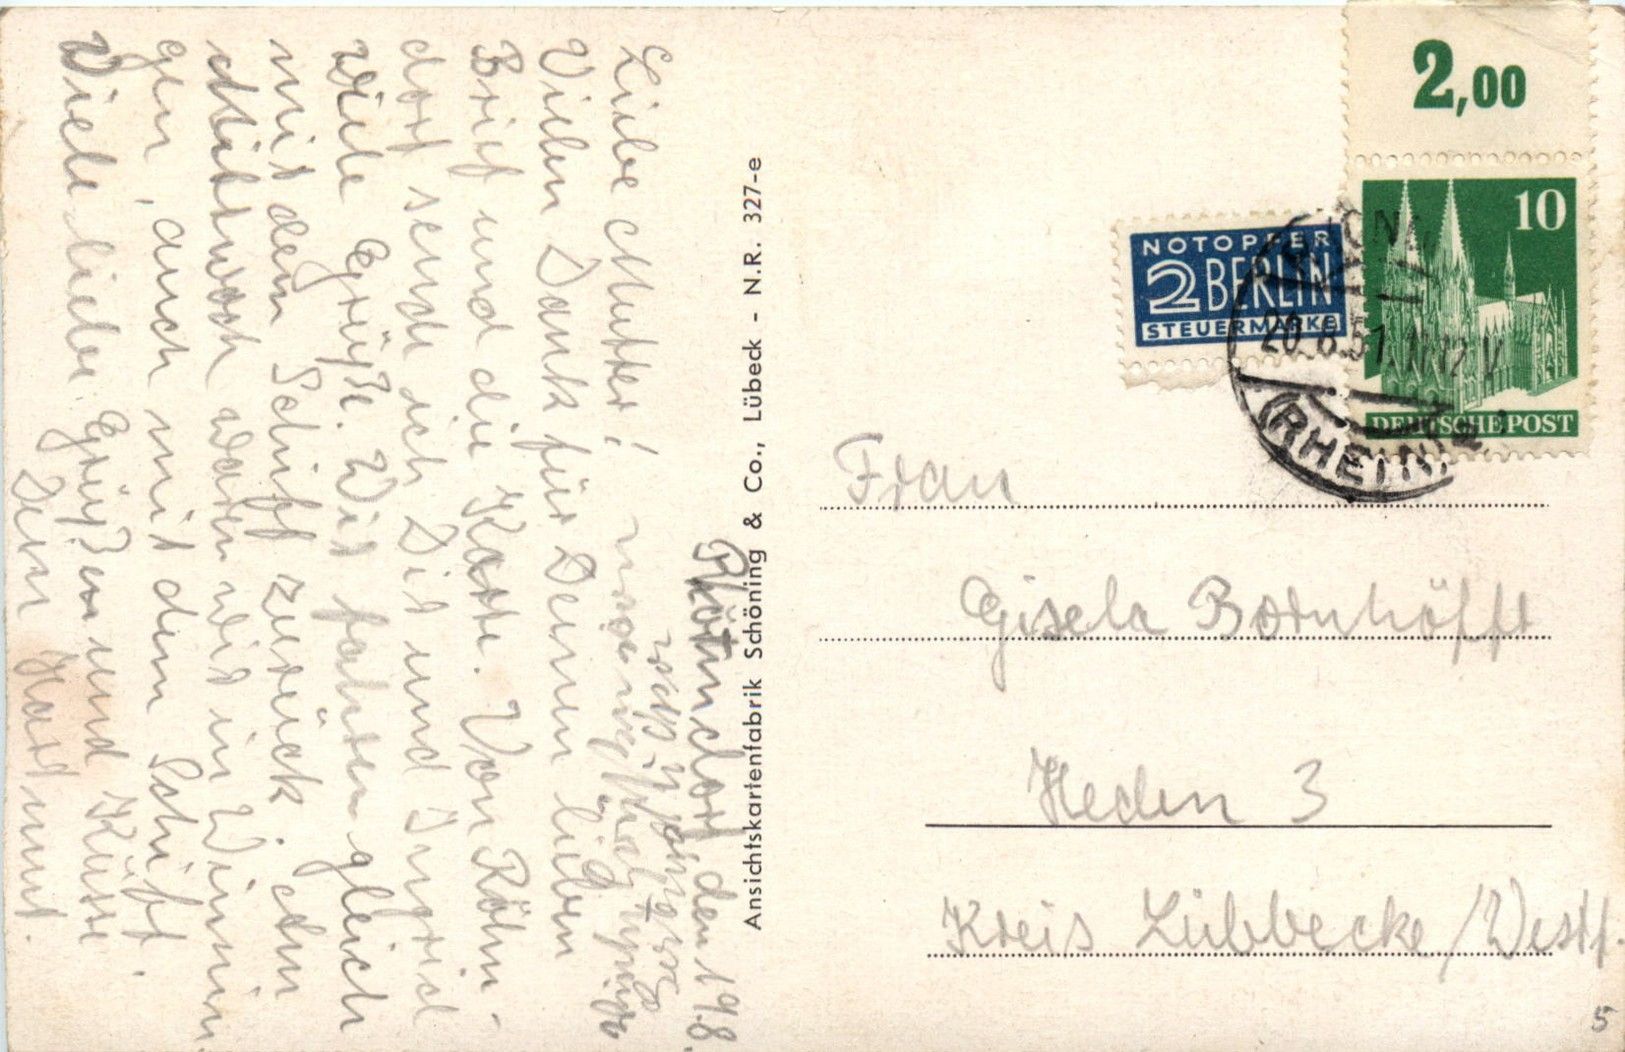 Röhndorf, den 19.8.
Liebe Mutter!
Vielen Dank für Deinen lieben
Brief und die Karte. Von Röhn-
dorf sende ich Dir und Ingrid
viele Grüße. Wir fahren gleich
mit dem Schiff zurück. Am
Mittwoch waren wir in Winnin
gen, auch mit dem Schiff.
Viele liebe Grüße und Küsse
Dein Hartmut.
Ansichtskartenfabrik Schöning & Co., Lübeck - N.R. 327-e
2,00
10
DEUTSCHE POST
NOTOPFER
2 BERLIN
STEUERMARKE
20.8.51.
(RHEIN)
Frau
Gisela Bornhöfft
Heden 3
Kreis Lübbecke/Westf.
5